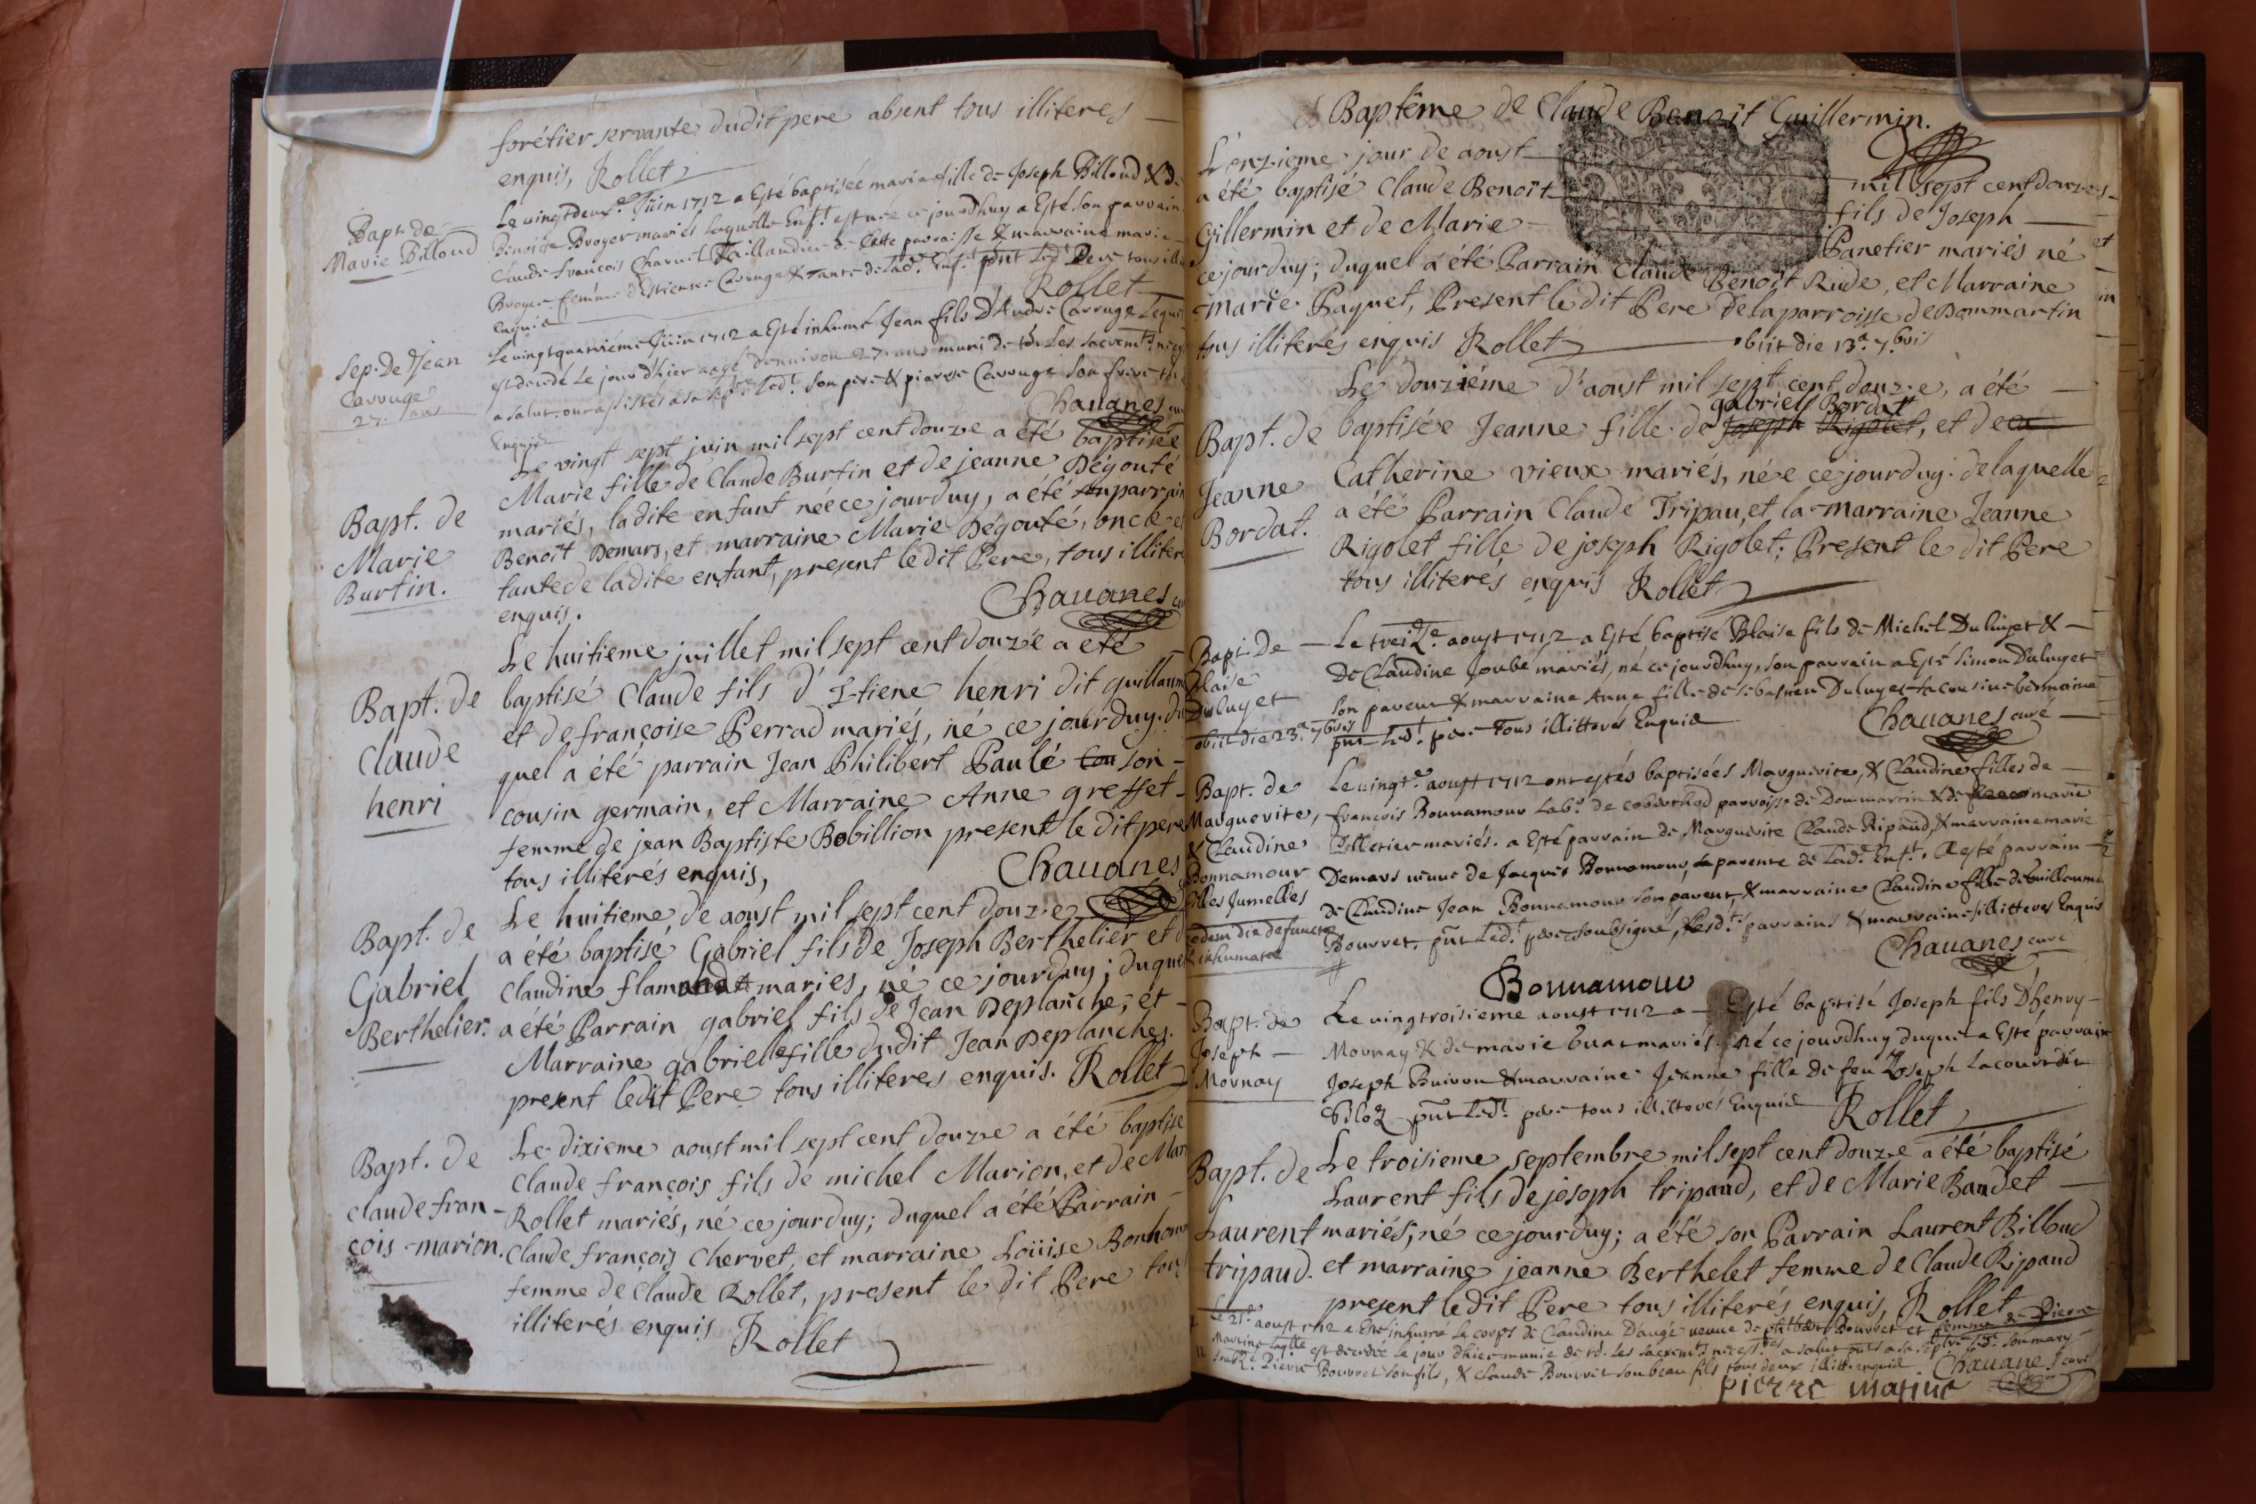 forétier servante dudit pere absent tous illiteres
enquis, Rollet
Bapt. de
Marie Billoud
Le vingtdeux.e Juin 1712 a Esté baptisée marie fille de Joseph Billoud & de
Benoite Broyer mariés laquelle Enf.t est née ce jourdhuy a Esté son parrain
Claude françois Charvet taillandier de Cette parroisse & marraine marie
Broyer femme d'Estienne Carruge & tante de lad.e Enf.t pnt led.t Pere tous
Enquis
Rollet
Sep. De Jean
Carruge
27. ans
Le vingtquatrieme Juin 1712 a Esté inhumé Jean fils D'Andre Carruge Lequel
est decedé le jour d'hier aagé denviron 27 ans muni de tous Les sacrem.ts
a salut, ont assistés a sa led.t son pere & pierre Carruge son frere
Enquis
Chauanes
Bapt. de
Marie
Burtin.
Le vingt sept juin mil sept cent douze a été baptisée
Marie fille de Claude Burtin et de jeanne Dégouté
mariés, ladite enfant née ce jourduy, a été son parrain
Benoît Demars, et marraine Marie Dégouté, oncle et
tante de ladite enfant, present le dit Pere, tous illiteres
enquis.
Chauanes
Bapt. de
Claude
henri
Le huitieme juillet mil sept cent douze a eté
baptisé Claude fils d' Etiene henri dit guillaume
et de françoise Perrad mariés, né ce jourduy. du
quel a été parrain Jean Philibert Paulé son
cousin germain, et Marraine Anne greffet
femme de jean Baptiste Bobillion present le dit pere
tous illiterés enquis,
Chauanes
Bapt. de
Gabriel
Berthelier.
Le huitieme de aoust mil sept cent douze
a été baptisé Gabriel fils de Joseph Berthelier et
Claudine flamand mariés, né ce jourduy; duquel
a été Parrain gabriel fils de Jean Deplanche, et
Marraine gabrielle fille dudit Jean Deplanches.
present ledit Pere tous illiteres enquis. Rollet
Bapt. de
claude fran-
çois marion.
Le dixieme aoust mil sept cent douze a été baptisé
Claude françois fils de michel Marion, et de
Rollet mariés, né ce jourduy; duquel a été Parrain
Claude françois Chervet, et marraine Loüise
femme de Claude Rollet, present le dit Pere tous
illiterés enquis Rollet
Baptême de Claude Benoît Guillermin.
L'onzieme jour de aoust mil sept cent douze
a été baptisé Claude Benoît fils de Joseph
Gillermin et de Marie Panetier mariés né
ce jourduy; duquel a été Parrain Claude Benoît Rude, et Marraine
marie Paquet, Present le dit Pere de la parroisse de Dommartin
tous illiterés enquis Rollet
obiit die 13.a 7.bris
Bapt. de
Jeanne
Bordat.
Le douziéme d'aoust mil sept cent douze, a été
baptisée Jeanne fille de Joseph Rigolet, et de
gabriel Bordat
Catherine vieux mariés, née ce jourduy. de laquelle
a été Parrain Claude Tripau, et la marraine Jeanne
Rigolet fille de joseph Rigolet, Present le dit Pere
tous illiterés enquis Rollet
Bapt. De
Blaise
Duluyet
obiit die 23.a 7bris
Le treiz.e aoust 1712 a Esté baptisé Blaise fils de Michel Duluyet &
de Claudine Joubé mariés, né ce jourdhuy, son parrain a Esté Simon Duluyet
son parent & marraine Anne fille de sébastien Duluyet sa cousine germaine
pnt led.t pere tous illitterés Enquis
Chauanes curé
Bapt. de
Marguerite,
& Claudine
Bonnamour
filles Jumelles
eadem die defunctæ
& inhumatæ
Le vingt.e aoust 1712 ont estés baptisées Marguerite, & Claudine filles de
françois Bonnamour Lab.r de parroisse de Dommartin & de marie
Pelletier mariés. a Esté parrain de Marguerite Claude Ripaud, & marraine marie
Demars veuve de Jacques Bonnamour, parente de lad.e Enf.t, A esté parrain
de Claudine Jean Bonnamour son parent, & marraine Claudine fille de Guillaume
Bourret, pnt led.t pere soubsigné, Lesd.ts parrains & marraines illitteres Enquis
Bonnamour
Chauanes curé
Bapt. de
Joseph
Mornay
Le vingtroisieme aoust 1712 a Esté baptisé Joseph fils D'henry
Mornay & de marie buat mariés né ce jourdhuy duquel a Esté parrain
Joseph Buiron & marraine Jeanne fille de feu Joseph Lacour dit
Piloz pnt led.t pere tous illitterés Enquis
Rollet
Bapt. de
Laurent
tripaud.
Le troisieme septembre mil sept cent douze a été baptisé
Laurent fils de joseph tripaud, et de Marie Baudet
mariés, né ce jourduy; a été son Parrain Laurent Billoud
et marraine jeanne Berthelet femme de Claude Ripaud
present ledit Pere tous illiterés enquis, Rollet
Le 21.e aoust 1712 a Esté inhumé le corps de Claudine Daugé veuve de Bourret et femme de Pierre
Matine est decedée le jour dhier munie de ts. les sacrem.ts a salut son mary
Pierre Bourret son fils, & Claude Bourret son beau fils tous deux illitt. enquis Chauanes curé
pierre matine